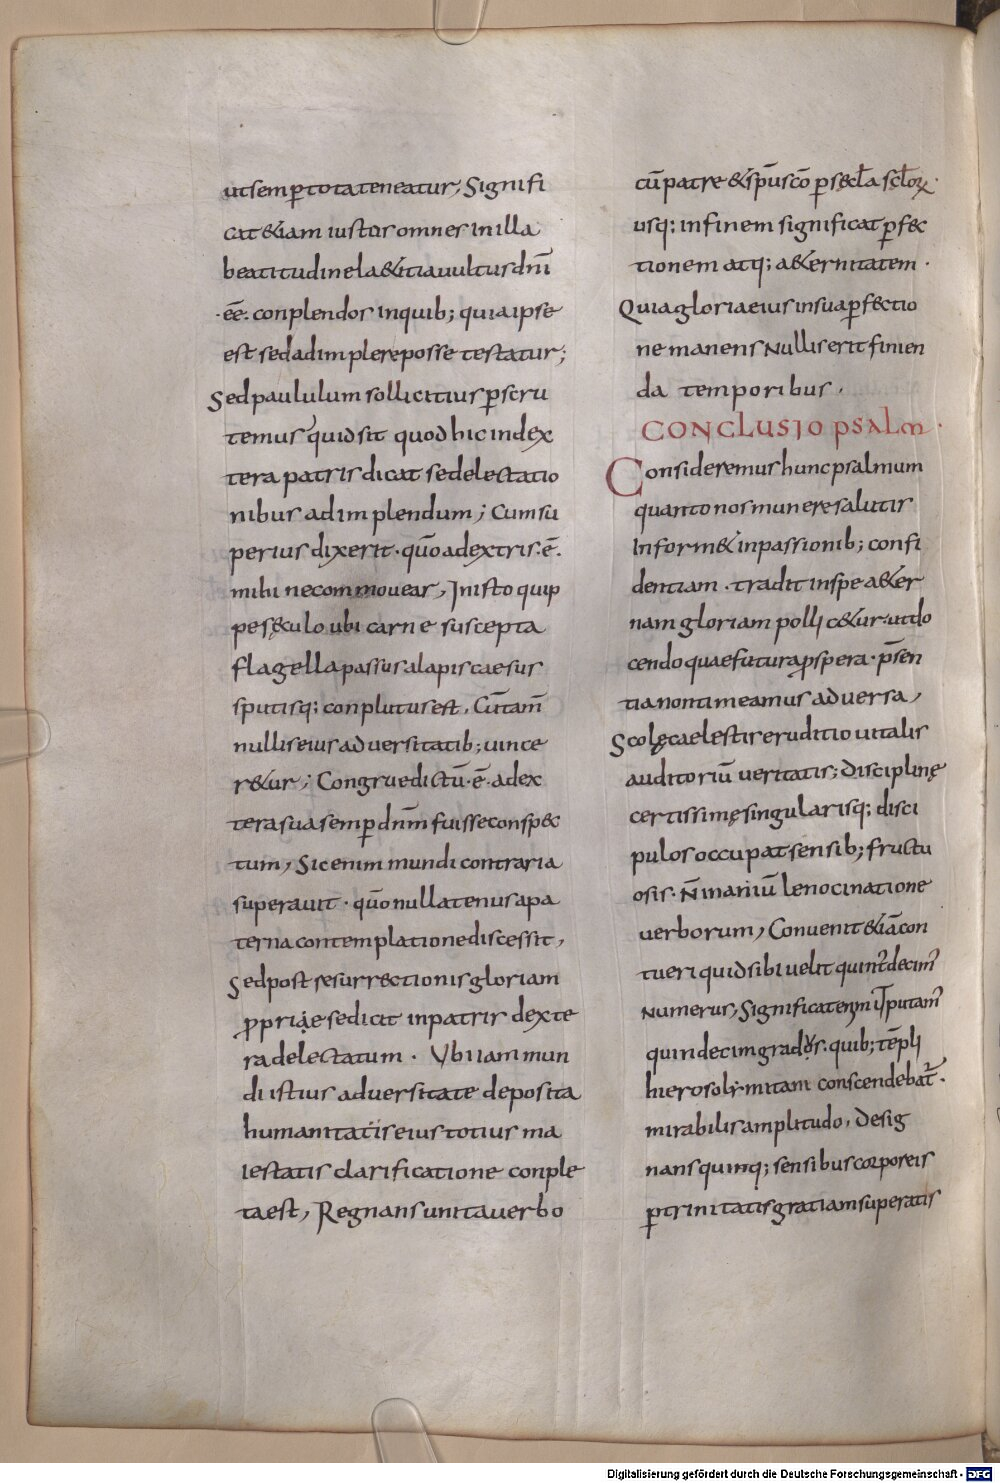 utsemp̲totateneatur, Signifi
cat &iam iustus omnes in illa
beatitudine la&itia uultus dn̄i
·ēē. conplendos inquib; quia ipse
est sed adimplere posse testatur;
Sed paululum sollicitius p̲scru
temus quid sit quod hic in dex
tera patris dicat se delectatio
nibus adimplendum; Cum su
perius dixerit · qūo a dextris·ē·
mihi ne commouear, In isto quip
pe sęculo ubi carne suscepta
flagella passus alapis caesus
sputisq; conplutus est. Cū tam̄
nullis eius aduersitatib; uince
r&ur; Congrue dictū·ē· a dex
tera sua semp̲ dn̄m fuisse conspec
tum, Sic enim mundi contraria
superauit · qūo nullatenus a pa
terna contemplatione discessit,
Sed post resurrectionis gloriam
p̲priae se dicit in patris dexte
ra delectatum · Ubi iam mun
di istius aduersitate deposita
humanitatis eius totius ma
iestatis clarificatione conple
ta est, Regnans unita uerbo
cū patre & sp̄u sc̄o p̲ sęcl̄a scl̄oꝝ·
usq; in finem significat p̲fec
tionem atq; a&ernitatem ·
Quia gloria eius in sua p̲fectio
ne manens nullis erit finien
da temporibus ·
CONCLUSIO psalm̄ ·
Consideremus hunc psalmum
quanto nos munere salutis
Inform& in passionib; confi
dentiam · tradit in spe a&er
nam gloriam pollic&ur· ut do
cendo quae futura p̲spera · p̄sen
tia non timeamus aduersa,
Scolę caelestis eruditio uitalis
auditoriū ueritatis; Disciplinę
certissimę singularisq; disci
pulos occupat sensib; fructu
osis· N̄ inaniū lenocinatione
uerborum, Conuenit &iā con
tueri quid sibi uelit quint᷒decim᷒
Numerus, Significat enim i̅putam᷒
quindecim gradus· quib; tēpli
hierosolymitani conscendebat᷒·
mirabilis amplitudo, Desig
nans quinq; sensibus corporeis
p̲ trinitatis gratiam superatis
Digitalisierung gefördert durch die Deutsche Forschungsgemeinschaft - DFG